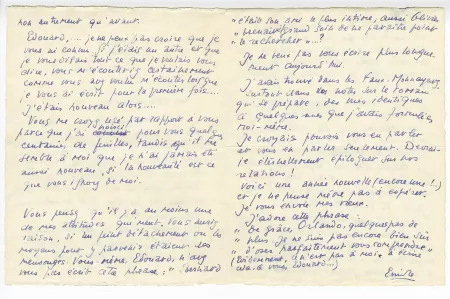 non autrement qu'avant.
Edouard,.... je ne peux pas croire que je
vous ai connu, si j'étais un autre et que
je vous disais tout ce que je voulais vous
dire, vous m'écouteriez certainement
comme vous
je vous ai écrit pour la première fois...
J'étais nouveau alors....
Vous me croyez usé par rapport à vous
parce que j'ai noirci pour vous quelques
centaines de feuilles, tandis qu'il me
semble à moi que je n'ai jamais été
aussi nouveau, si la nouveauté est ce
que vous
Vous pensez qu'il y a au moins une
de mes attitudes qui ment, vous avez
raison, si un petit détachement ou les
moyens pour y parvenir étaient des
mensonges. Vous-même, Edouard, n'avez
vous pas écrit cette phrase : " Bernard
" était son ami le plus intime, aussi Olivier
" prenait grand soin de ne paraître point
" le rechercher...?
Je ne veux pas vous écrire plus longue-
ment aujourd'hui.
J'avais trouvé dans les Faux-Monnayeurs,
surtout dans des notes sur le roman
qui se prépare, des mots identiques
à quelques uns que j'avais formulés
moi-même.
Je croyais pouvoir vous en parler
et vous en parler seulement. Devrai-
je éternellement épiloguer sur nos
relations !
Voici une année nouvelle (encore une !)
et je ne pense même pas à espérer.
Je vous envoie mes vœux.
J'adore cette phrase :
" De grâce, Orlando, quelque pas de
" plus. Je ne suis pas encore bien sûr
" d'oser parfaitement vous comprendre "
(Evidemment, ce n'est pas à moi, à écrire
cela à vous Edouard...)
Emile